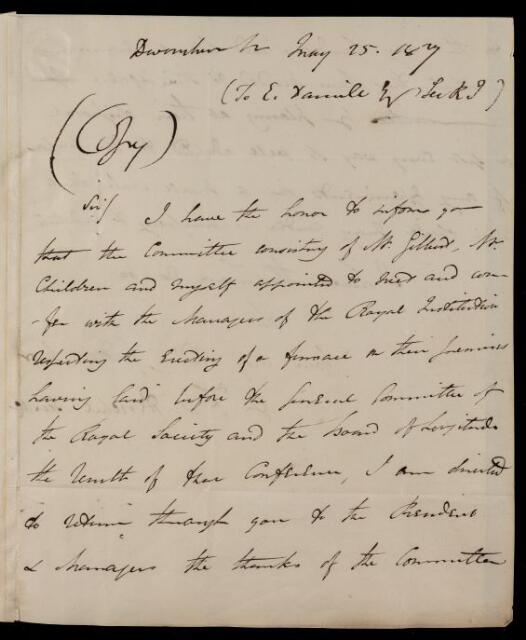 Devonshire St May 25. 1827
(To E. Daniell Esq Sec R I)
(Copy)
Sir/ I have the honor to inform you
that the Committee consisting of Mr. Gilbert, Mr.
Children and myself appointed to meet and con-
-fer with the Managers of the Royal Institution
respecting the Erecting of a furnace on their premises
having laid before the General Committee of
the Royal Society and the Board of Longitude
the result of that Conference, I am directed
to return through you to the President
& Managers the thanks of the Committee